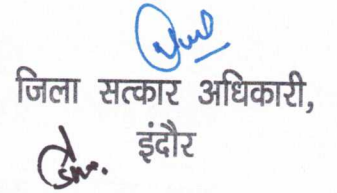 जिला सत्कार अधिकारी,
इंदौर